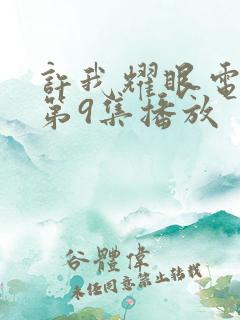 許我耀眼電
第9集播放
谷體偉
未经同意禁止转载